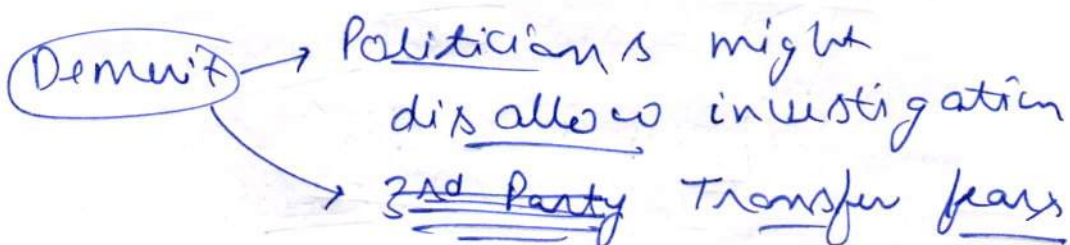 Demerit → Politicians might
disallow investigation
→ 3rd Party Transfer fears